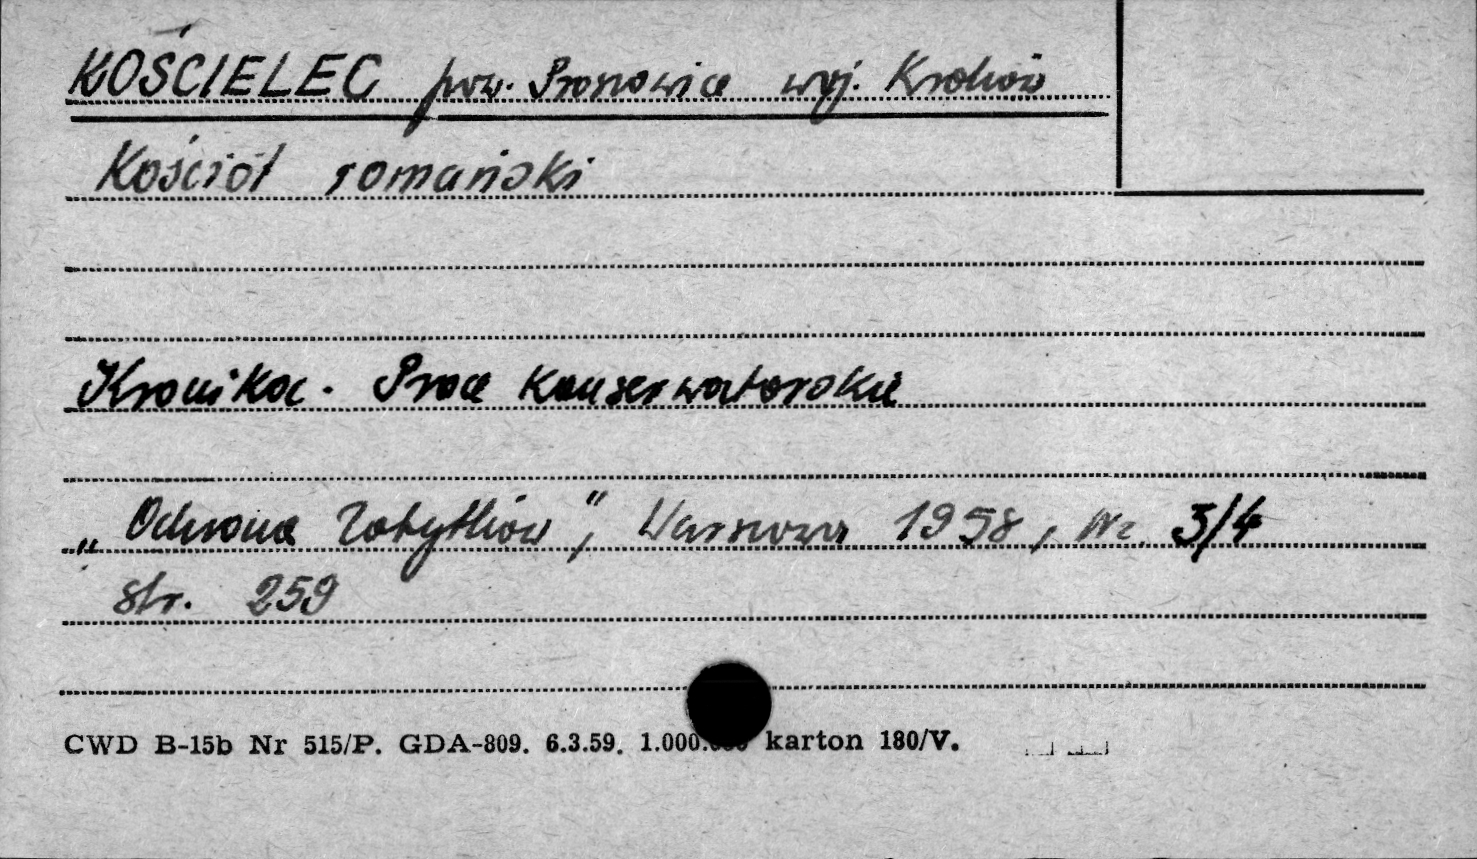 KOŚCIELEC pow. Proszowice woj. Kraków
Kościół romański
Kronika. Prace konserwatorskie
„Ochrona Zabytków", Warszawa 1958, Nr. 3/4
str. 259
CWD B-15b Nr 515/P. GDA-809. 6.3.59. 1.000.000 karton 180/V.